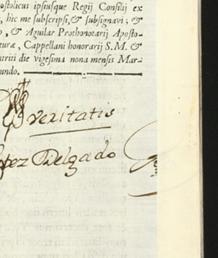 ostolicus ipsiusque Regij Consilij ex
, hic me subscripsi, & subsignavi; &
o, & Aguilar Prothonotarij Aposto-
euræ, Cappellani honorarij S. M. &
atriti die vigesima nona mensis Mar-
undo.
veritatis
opez Delgado